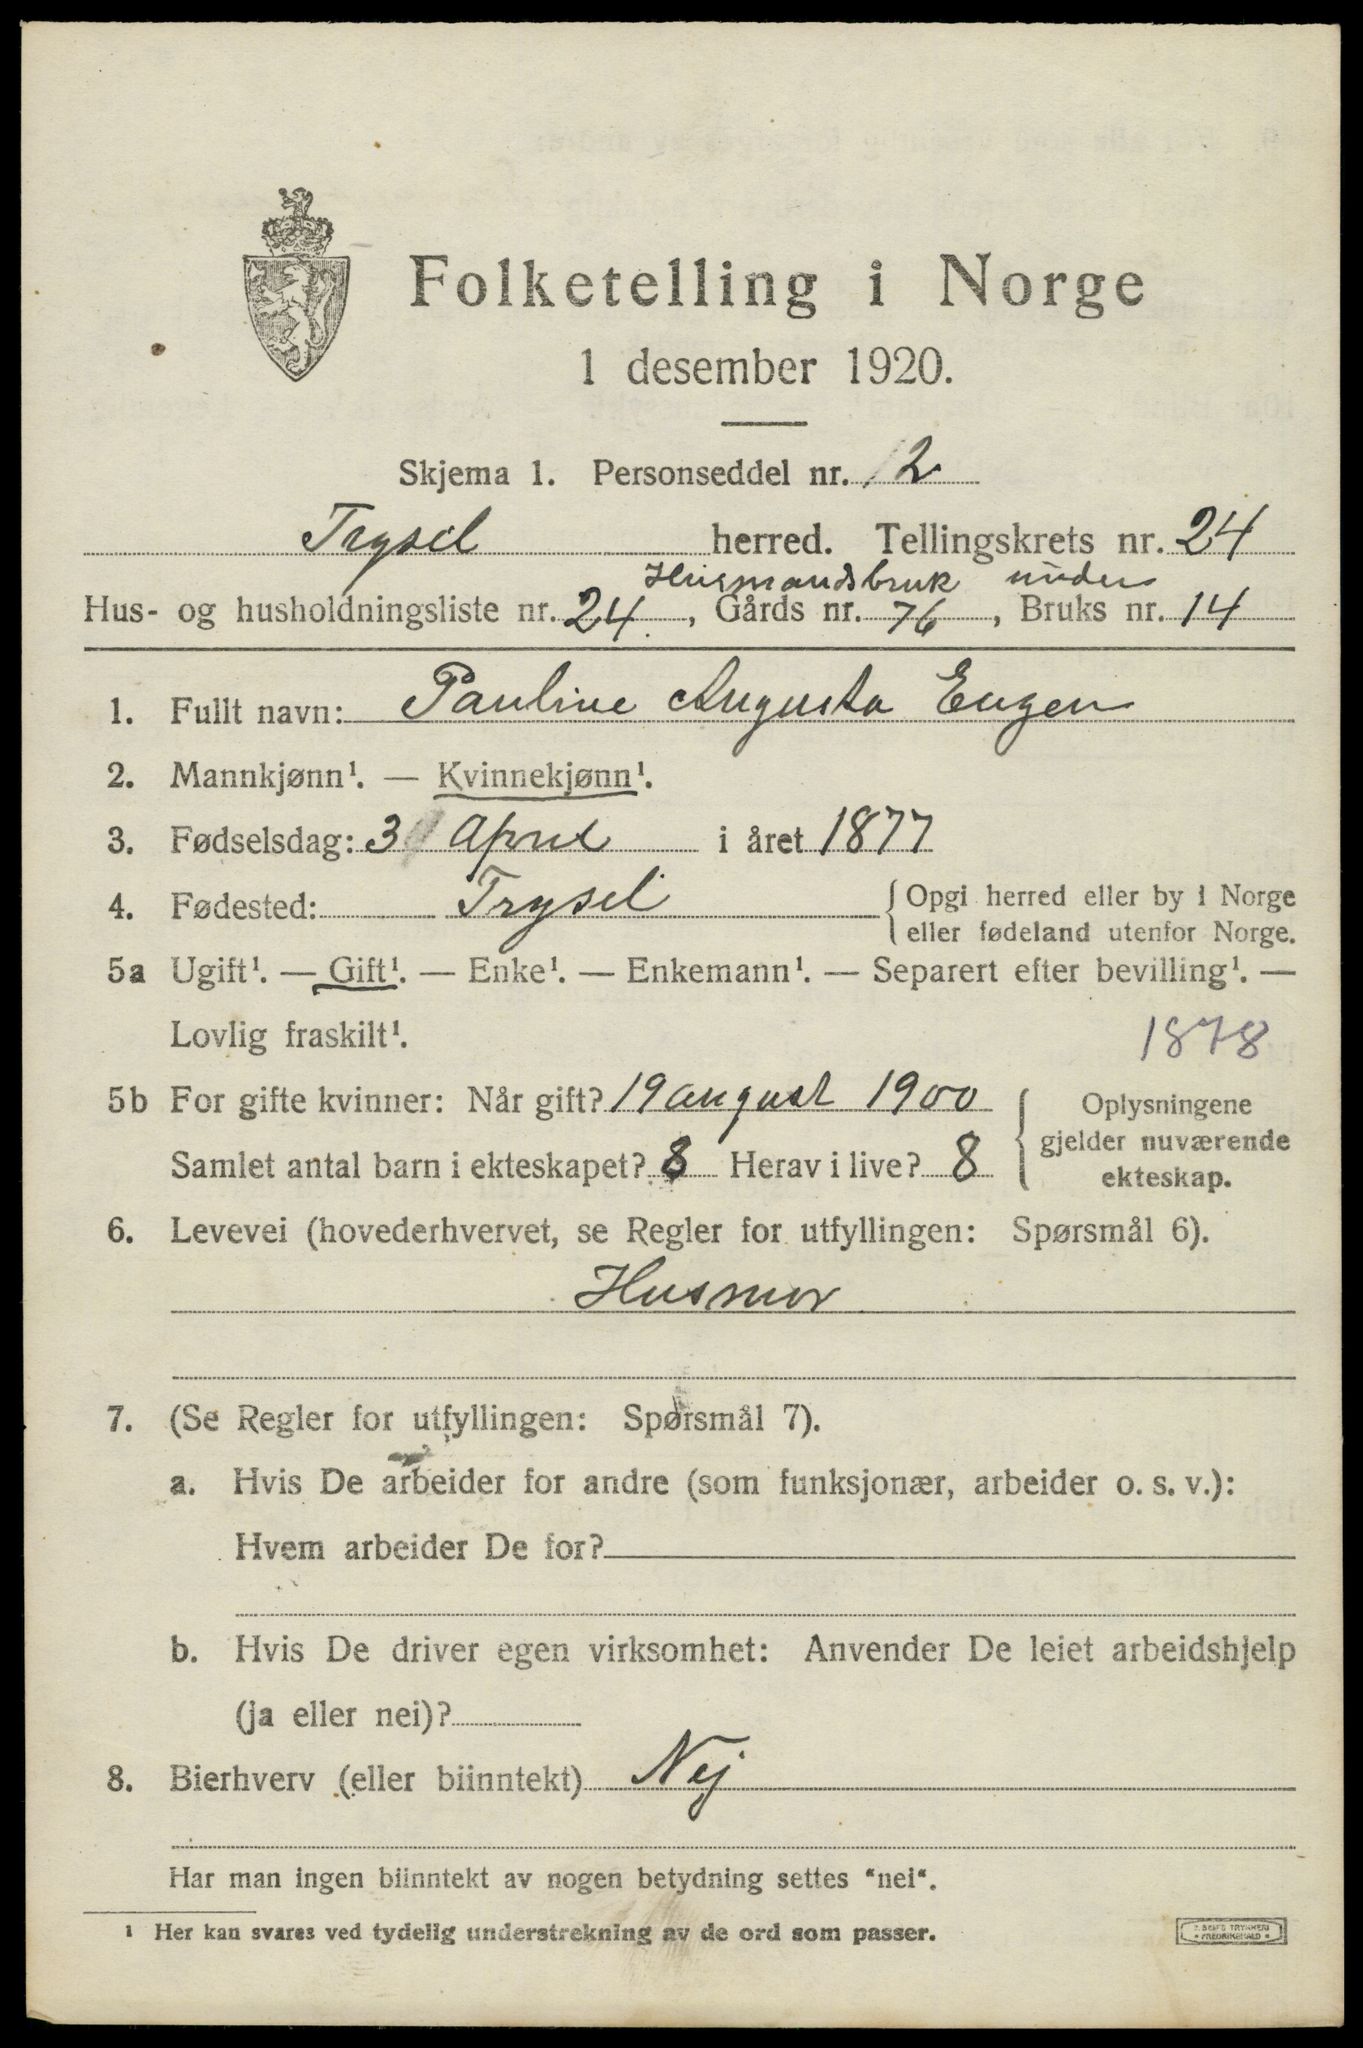 Folketelling i Norge
1 desember 1920.
Skjema 1. Personseddel nr. 2
Trysil herred. Tellingskrets nr. 24
Husmandsbruk under
Hus- og husholdningsliste nr. 24, Gårds nr. 76, Bruks nr. 14
1. Fullt navn: Pauline Augusta Engen
2. Mannkjønn¹. — Kvinnekjønn¹.
3. Fødselsdag: 3 April i året 1877
4. Fødested: Trysil {Opgi herred eller by i Norge
eller fødeland utenfor Norge.
5a Ugift¹. — Gift¹. — Enke¹. — Enkemann¹. — Separert efter bevilling¹. —
Lovlig fraskilt¹. 1878
5b For gifte kvinner: Når gift? 19 august 1900 { Oplysningene
gjelder nuværende
Samlet antal barn i ekteskapet? 8 Herav i live? 8 ekteskap.
6. Levevei (hovederhvervet, se Regler for utfyllingen: Spørsmål 6).
Husmor
7. (Se Regler for utfyllingen: Spørsmål 7).
a. Hvis De arbeider for andre (som funksjonær, arbeider o. s. v.):
Hvem arbeider De for?
b. Hvis De driver egen virksomhet: Anvender De leiet arbeidshjelp
(ja eller nei)?
8. Bierhverv (eller biinntekt) Nej
Har man ingen biinntekt av nogen betydning settes "nei".
¹ Her kan svares ved tydelig understrekning av de ord som passer.
TRYKKERI
FREDRIKSHALD